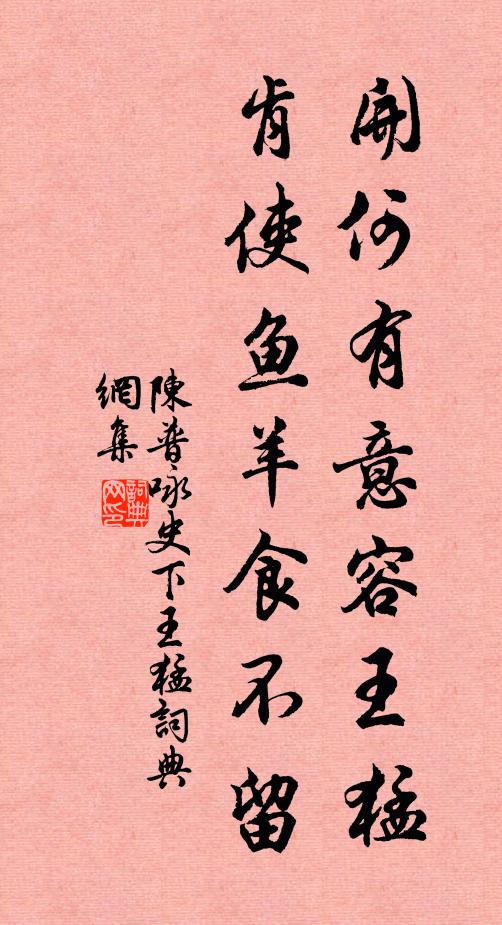 開何有意容王猛
肯使鱼羊食不留
陳普咏史下王猛詞典
網集
詞典
网印